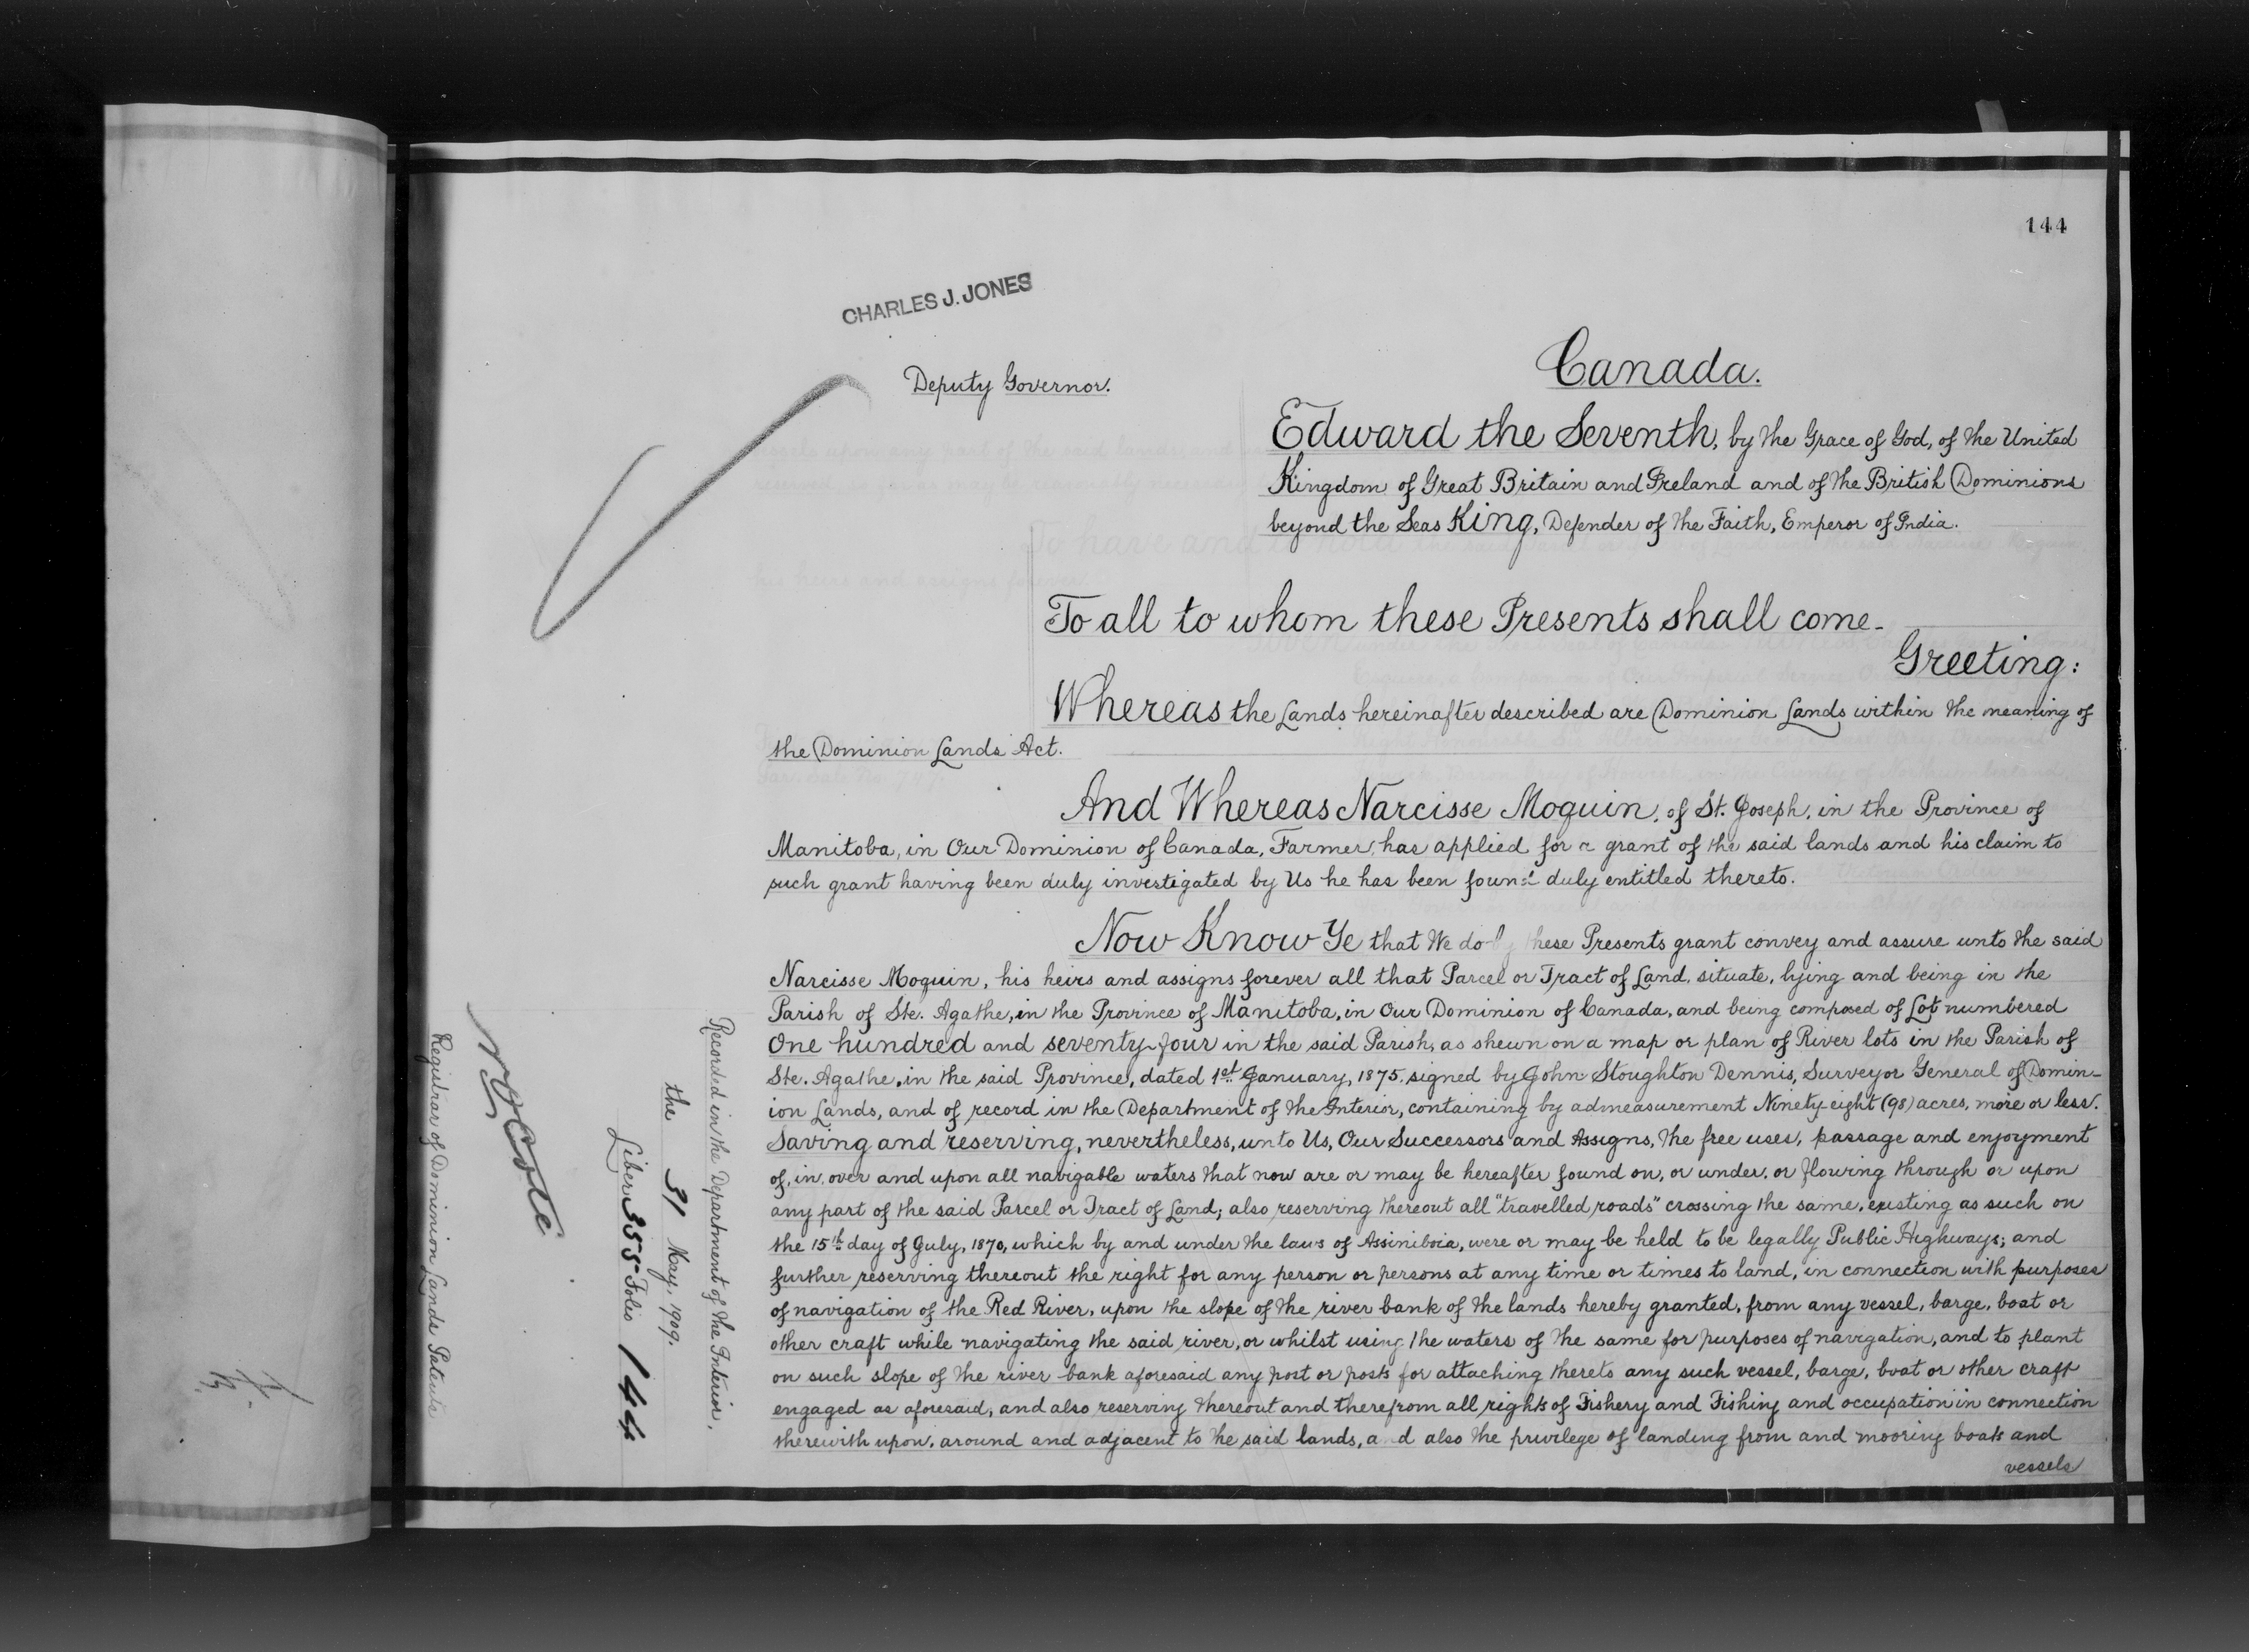 144
CHARLES J. JONES
Deputy Governor.
Canada.
Edward the Seventh, by the Grace of God, of the United
Kingdom of Great Britain and Ireland and of the British Dominions
beyond the Seas King, Defender of the Faith, Emperor of India.
To all to whom these Presents shall come-
Greeting:
Whereas the Lands hereinafter described are Dominion Lands within the meaning of
the Dominion Lands Act.
And Whereas Narcisse Moquin, of St. Joseph, in the Province of
Manitoba, in Our Dominion of Canada, Farmer, has applied for a grant of the said lands and his claim to
such grant having been duly investigated by Us he has been found duly entitled thereto.
Now Know Ye that We do by these Presents grant convey and assure unto the said
Narcisse Moquin, his heirs and assigns forever all that Parcel or Tract of Land, situate, lying and being in the
Parish of Ste. Agathe, in the Province of Manitoba, in Our Dominion of Canada, and being composed of Lot numbered
One hundred and seventy-four in the said Parish, as shewn on a map or plan of River lots in the Parish of
Ste. Agathe, in the said Province, dated 1st January, 1875, signed by John Stoughton Dennis, Surveyor General of Domin-
ion Lands, and of record in the Department of the Interior, containing by admeasurement Ninety-eight (98) acres, more or less.
Saving and reserving, nevertheless, unto Us, Our Successors and Assigns, the free uses, passage and enjoyment
of, in, over and upon all navigable waters that now are or may be hereafter found on, or under, or flowing through or upon
any part of the said Parcel or Tract of Land; also reserving thereout all "travelled roads" crossing the same, existing as such on
the 15th day of July, 1870, which by and under the laws of Assiniboia, were or may be held to be legally Public Highways; and
further reserving thereout the right for any person or persons at any time or times to land, in connection with purposes
of navigation of the Red River, upon the slope of the river bank of the lands hereby granted, from any vessel, barge, boat or
other craft while navigating the said river, or whilst using the waters of the same for purposes of navigation, and to plant
on such slope of the river bank aforesaid any post or posts for attaching thereto any such vessel, barge, boat or other craft
engaged as aforesaid, and also reserving thereout and therefrom all rights of Fishery and Fishing and occupation in connection
therewith upon, around and adjacent to the said lands, and also the privilege of landing from and mooring boats and
vessels
Recorded in the Department of the Interior,
the 31 May, 1909.
Liber 355 Folio 144
Côté
Registrar of Dominion Lands Patents